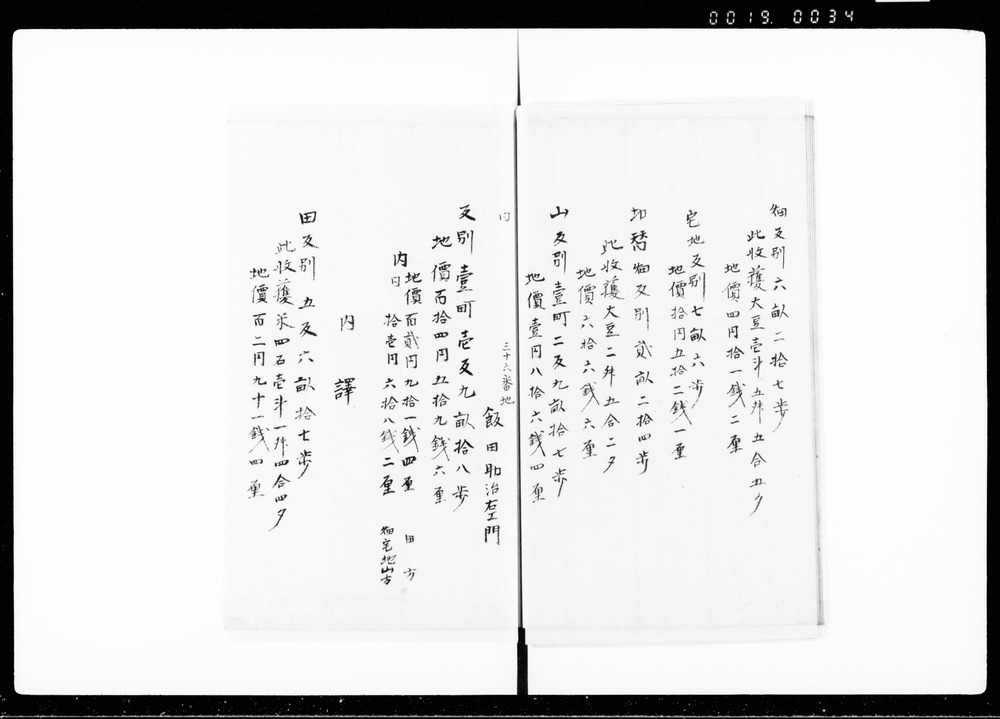 0019. 0034
畑反別六畝二拾七歩
此收穫大豆壱斗五升五合五夕
地價四円拾一銭二厘
宅地反別七畝六歩
地價拾円五拾二銭一厘
切替畑反別貳畝二拾四歩
此收穫大豆二升五合二夕
地價六拾六銭六厘
山反別壹町二反九畝拾七歩
地價壹円八拾六銭四厘
同
三十六番地
飯田助治右エ門
反別壹町壱反九畝拾八歩
地價百拾四円五拾九銭六厘
内 地價百貳円九拾一銭四厘 田方
同 拾壱円六拾八銭二厘 畑宅地山方
内譯
田反別五反六畝拾七歩
此收穫米四石壱斗一升四合四夕
地價百二円九十一銭四厘